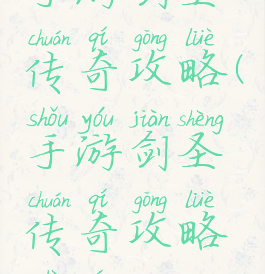 chuán qí gōng lüè
传奇攻略(
shǒu yóu jiàn shèng
手游剑圣
chuán qí gōng lüè
传奇攻略